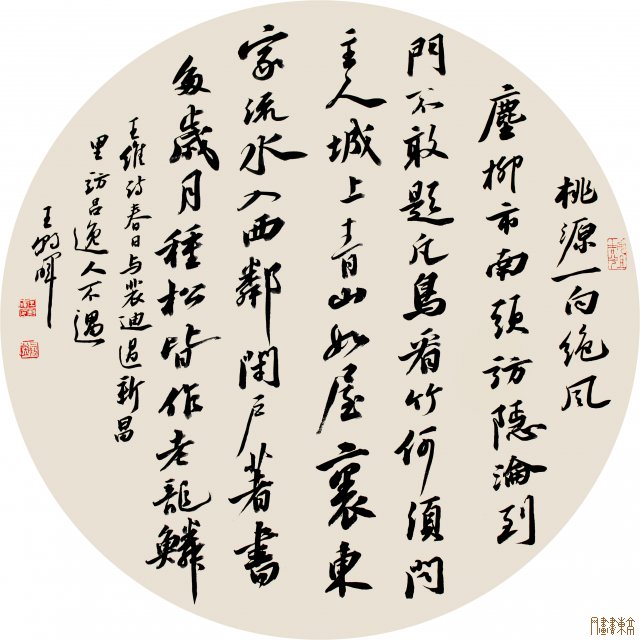 桃源一向絶风
塵柳市南頭訪隱淪到
門不敢題凡鳥看竹何須問
主人城上青山如屋裏東
家流水入西鄰閉户著書
多歲月種松皆作老龍鱗
王維詩春日与裴迪過新昌
里訪呂逸人不遇
王暉